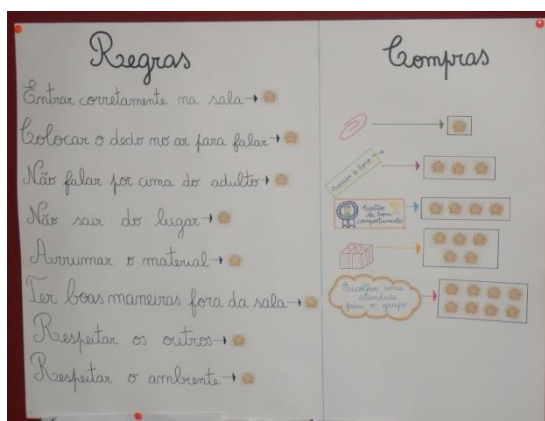 Regras
Entrar corretamente na sala →
Colocar o dedo no ar para falar →
Não falar por cima do adulto →
Não sair do lugar →
Arrumar o material →
Ter boas maneiras fora da sala →
Respeitar os outros →
Respeitar o ambiente →
Compras
Cartão
de bom
comportamento
Escolher uma
atividade
para o grupo